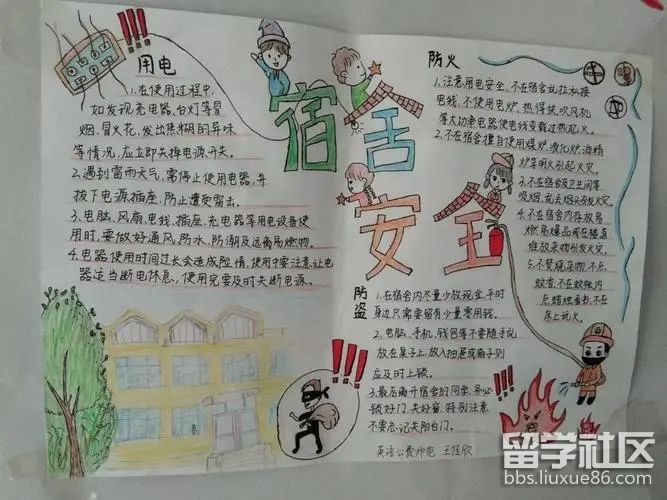 宿舍
安全
用电
1.在使用过程中,
如发现充电器,台灯等冒
烟,冒火花,发出焦糊的异味
等情况,应立即关掉电源开关。
2.遇到雷雨天气,需停止使用电器,并
拔下电源插座,防止遭受雷击。
3.电脑,风扇,电线,插座,充电器等用电设备使
用时,要做好通风,防水,防潮及远离易燃物。
4.电器使用时间过长会造成险情,使用中要注意,让电
器适当断电休息,使用完要及时关断电源。
防火
1.注意用电安全,不在宿舍乱拉私接
电线,不使用电炉,热得快,吹风机
等大功率电器使电线变载过热起火。
2.不在宿舍擅自使用煤炉,液化炉,酒精
炉等用火引起火灾。
3.不在宿舍及卫生间等
吸烟,乱丢烟头引发火灾。
4.不在宿舍内存放易
燃易爆品或在楼道
堆放杂物引发火灾。
5.不焚烧杂物,不点
蚊香,不在蚊帐内
点蜡烛看书,不在
床上玩火。
防盗
1.在宿舍内尽量少放现金,平时
身边只需要留有少量零用钱。
2.电脑,手机,钱包等不要随手乱
放在桌子上,放入抽屉或箱子则
应及时上锁。
3.最后离开宿舍的同学,务必
锁好门,关好窗,特别注意
不要忘记关阳台门。
英语公费师范 王佳欣
留学社区
bbs.liuxue86.com